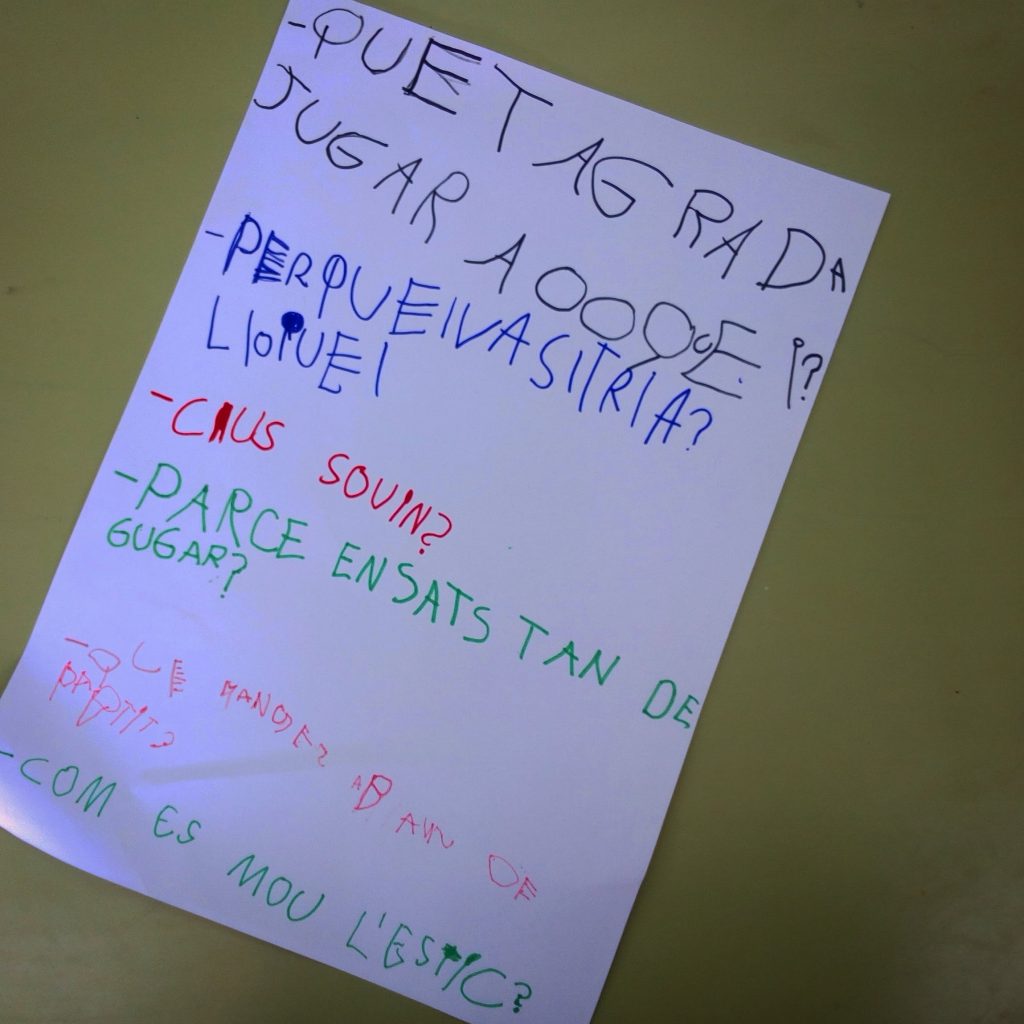 -QUE T AGRADA
JUGAR A OOQUE I?
-PERQUE IVA SITRIA?
LIOIUEI
-CAUS SOUIN?
-PARCE ENSATS TAN DE
GUGAR?
-QUE MANGES ABAN DE
PARTIT?
-COM ES MOU L'ESTIC?